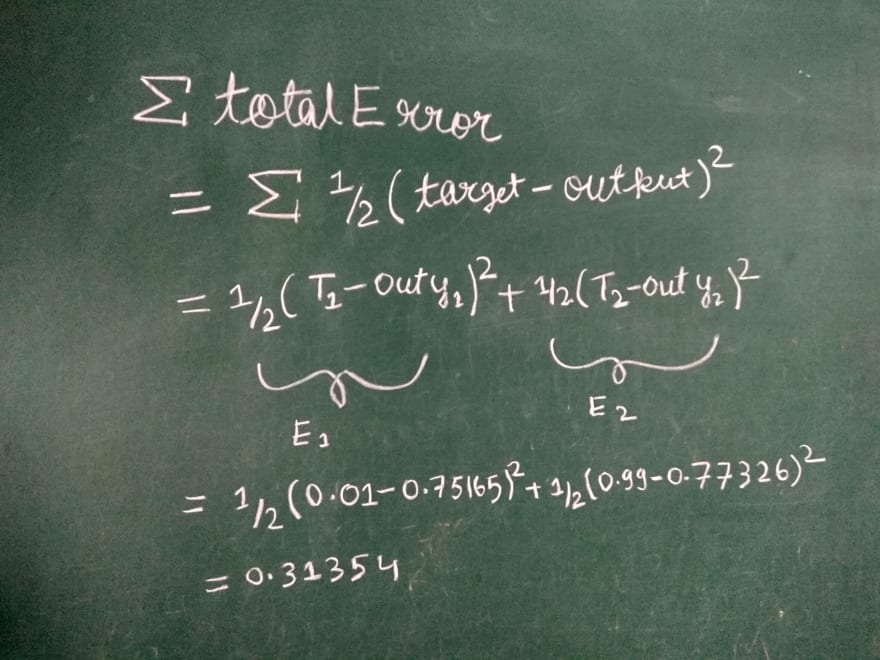 Σ total Error
= Σ 1/2 (target - output)²
= 1/2 (T₁ - out y₁)² + 1/2 (T₂ - out y₂)²
E₁ E₂
= 1/2 (0.01 - 0.75165)² + 1/2 (0.99 - 0.77326)²
= 0.31354